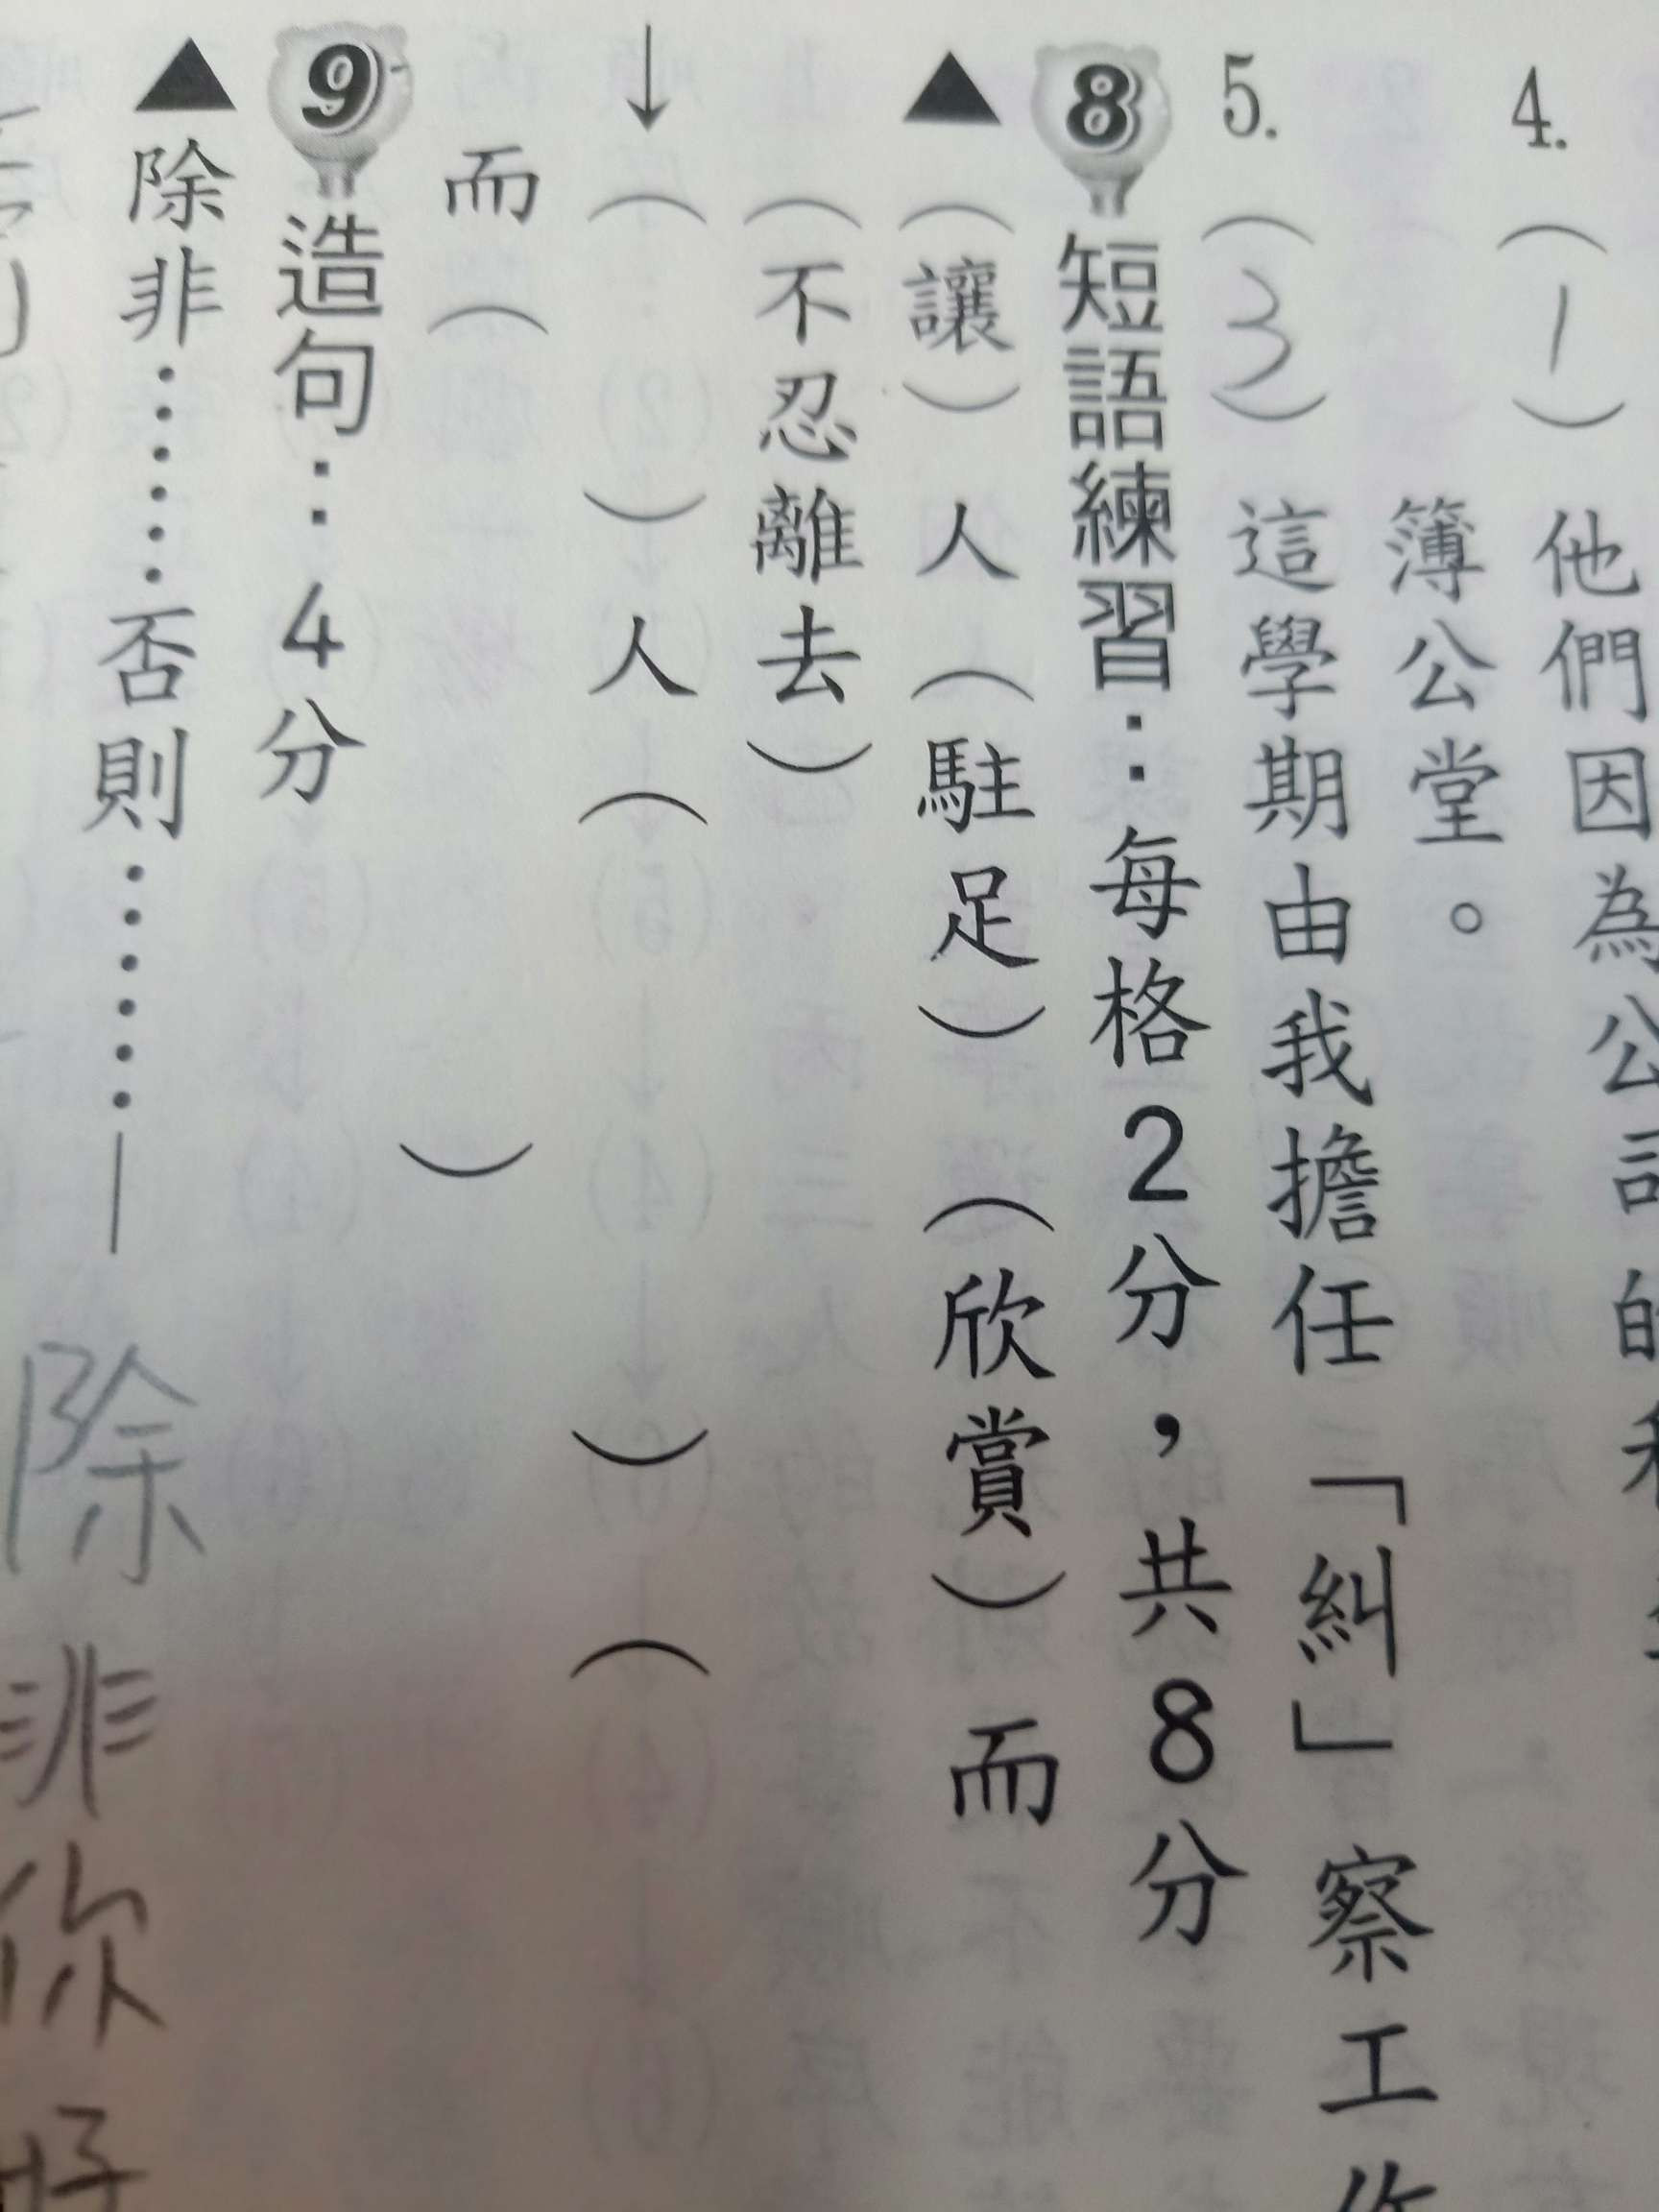 4.（1）他們因為公
簿公堂。
5.（3）這學期由我擔任「糾」察工作
8 短語練習：每格2分，共8分
▲（讓）人（駐足）（欣賞）而
（不忍離去）
↓（ ）人（ ）（
而（ ）
9 造句：4分
▲除非……否則……—除非你好